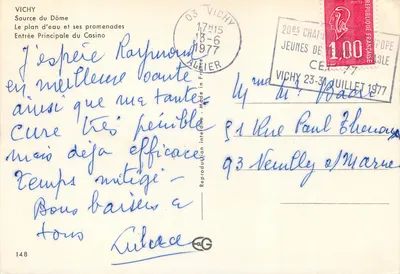 VICHY
Source du Dôme
Le plan d'eau et ses promenades
Entrée Principale du Casino
J'espère Raymond
en meilleure santé
ainsi que ma tante
Cure très pénible
mais déjà efficace
Temps mitigé -
Bons baisers à
tous
148
Reproduction interdite
Made in France
03 VICHY
17H15
13-6
1977
ALLIER
JEUNES DE
VICHY 23-31 JUILLET 1977
1.00
REPUBLIQUE FRANCAISE
51 Rue Paul
93 Neuilly s/Marne